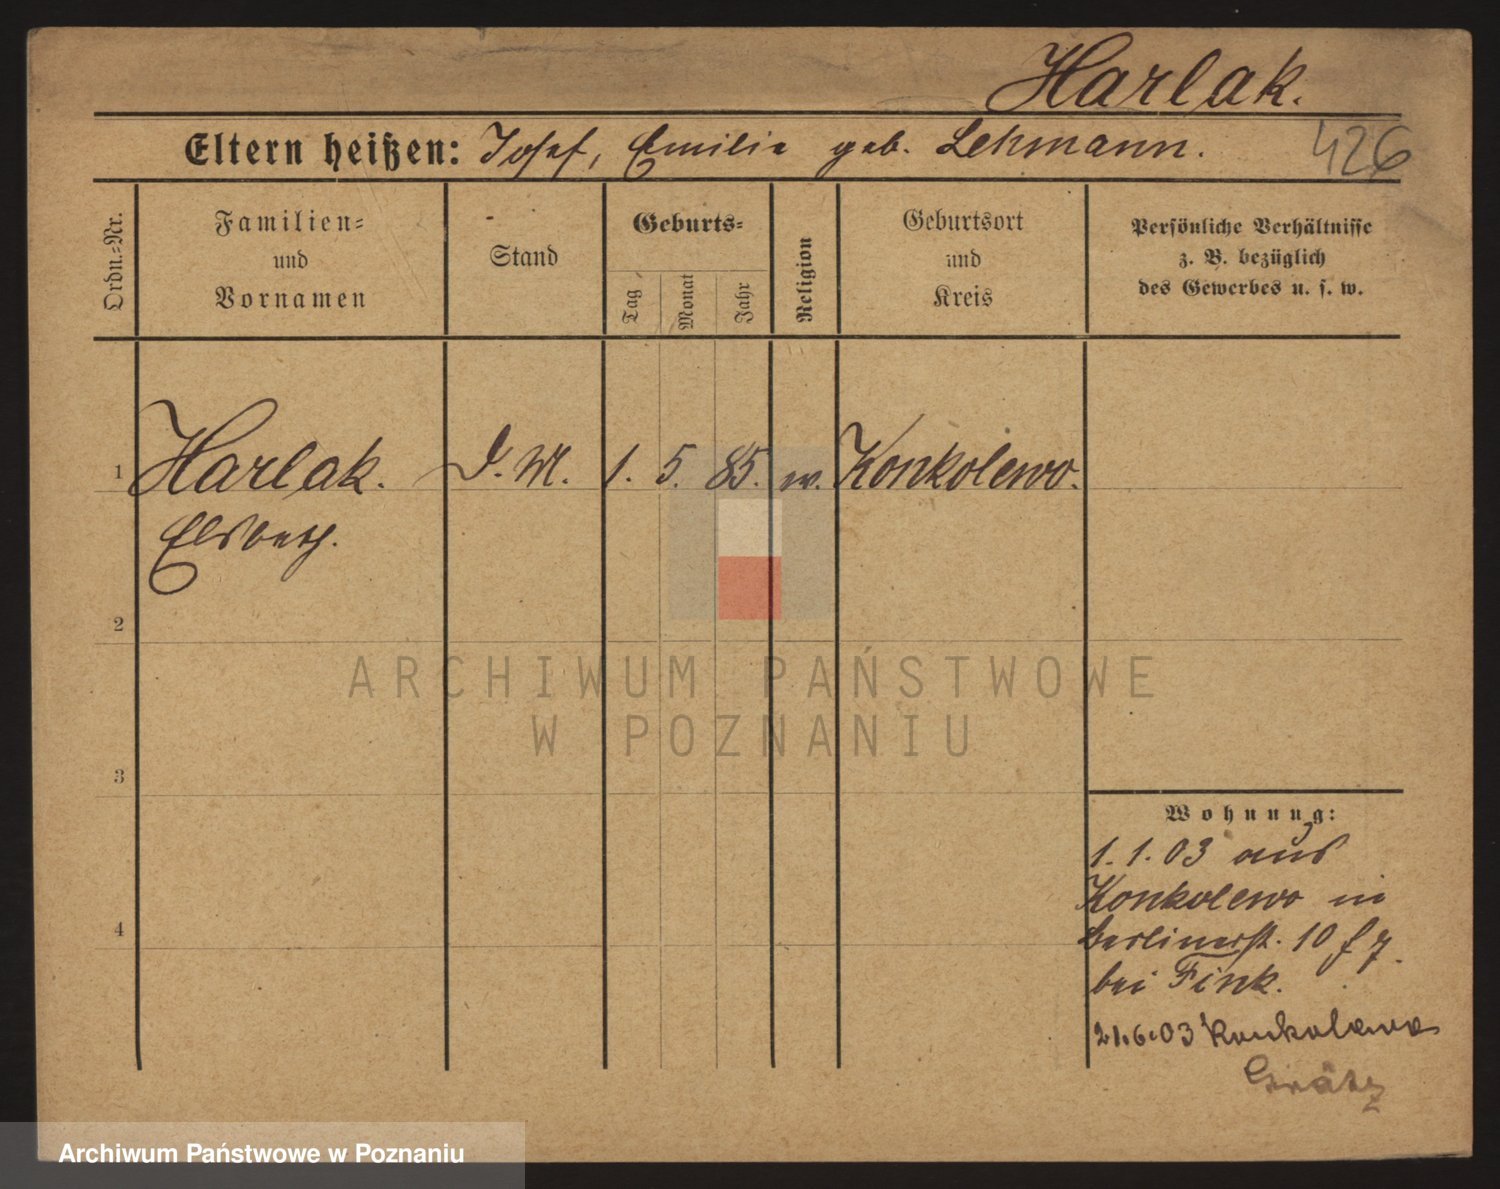 Harlak.
Eltern heißen: Josef, Emilie geb. Lehmann. 426
Ordn.-Nr.
Familien-
und
Vornamen
Stand
Geburts-
Tag
Monat
Jahr
Religion
Geburtsort
und
Kreis
Persönliche Verhältnisse
z. B. bezüglich
des Gewerbes u. s. w.
1 Harlak. D. M. 1. 5. 85. w. Konkolewo.
Elsbeth.
2
3
4
ARCHIWUM PAŃSTWOWE
W POZNANIU
Wohnung:
1. 1. 03 aus
Konkolewo in
Berlinerst. 10
bei Fink.
21.6.03 Konkolewo
Grätz
Archiwum Państwowe w Poznaniu